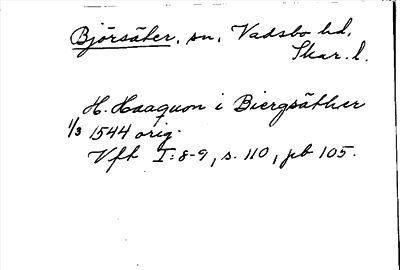 Björsäter, sn, Vadsbo hd,
Skar. l.
H. Haaquon i Biergsäther
1/3 1544 orig.
Vfh I:8-9, s. 110, pb 105.